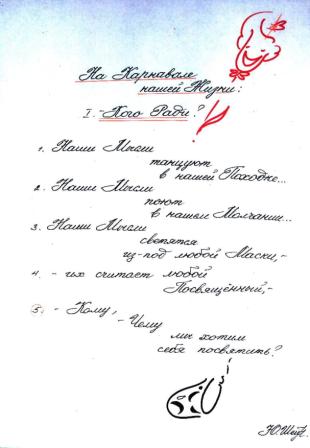 На Карнавале
нашей Жизни:
I. - Кого Ради?
1. Наши Мысли
танцуют
в нашей Походке...
2. Наши Мысли
поют
в нашем Молчании...
3. Наши Мысли
светятся
из-под любой Маски,-
4. - их считает любой
Посвящённый,-
5. - Кому,
- Чему
мы хотим
себя посвятить?